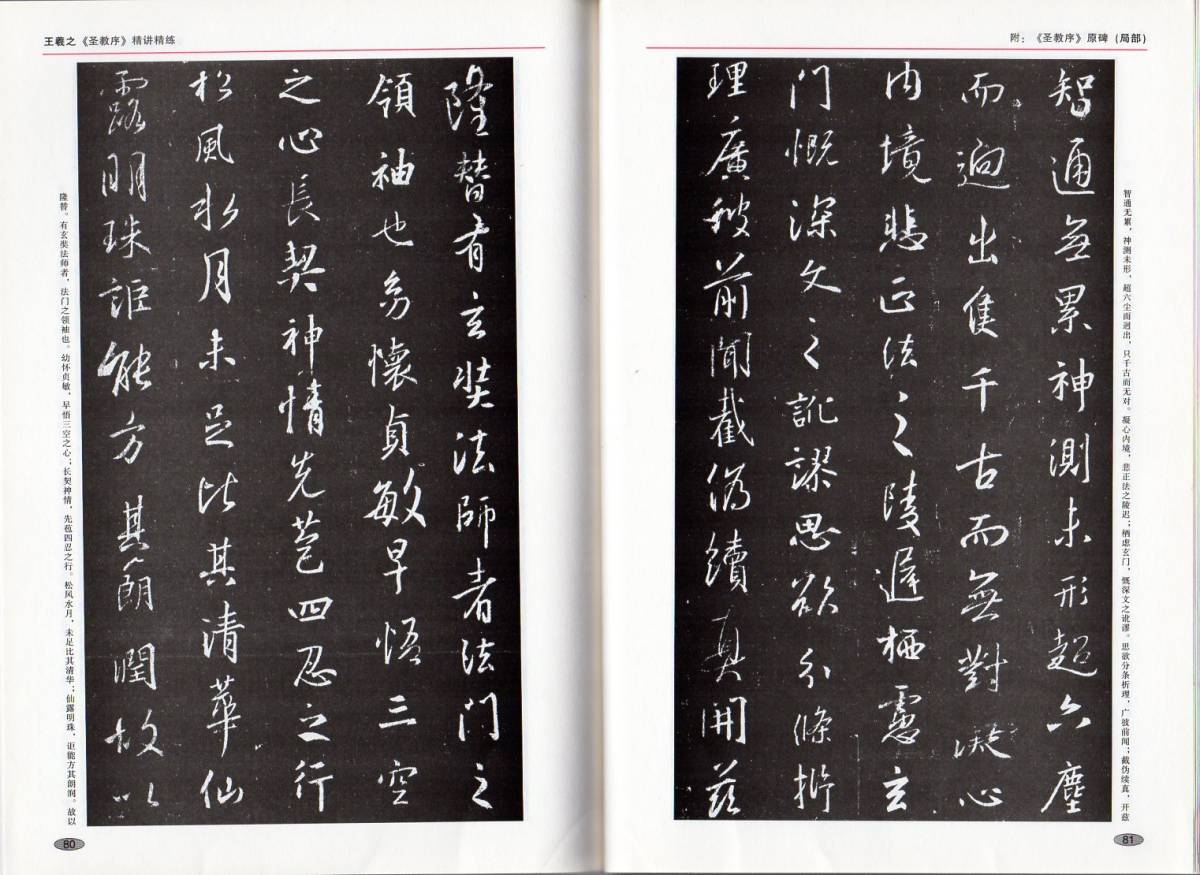 王羲之《圣教序》精讲精练
隆替有玄奘法師者法門之
領袖也幼懷貞敏早悟三空
之心長契神情先苞四忍之行
松風水月未足比其清華仙
露明珠詎能方其朗潤故以
隆替。有玄奘法师者，法门之领袖也。幼怀贞敏，早悟三空之心；长契神情，先苞四忍之行。松风水月，未足比其清华；仙露明珠，讵能方其朗润。故以
80
附：《圣教序》原碑（局部）
智通無累神測未形超六塵
而迥出隻千古而無對凝心
內境悲正法之陵遲栖慮玄
門慨深文之訛謬思欲分條析
理廣彼前聞截偽續真開茲
智通无累，神测未形，超六尘而迥出，只千古而无对。凝心内境，悲正法之陵迟；栖虑玄门，慨深文之讹谬。思欲分条析理，广彼前闻；截伪续真，开兹
81